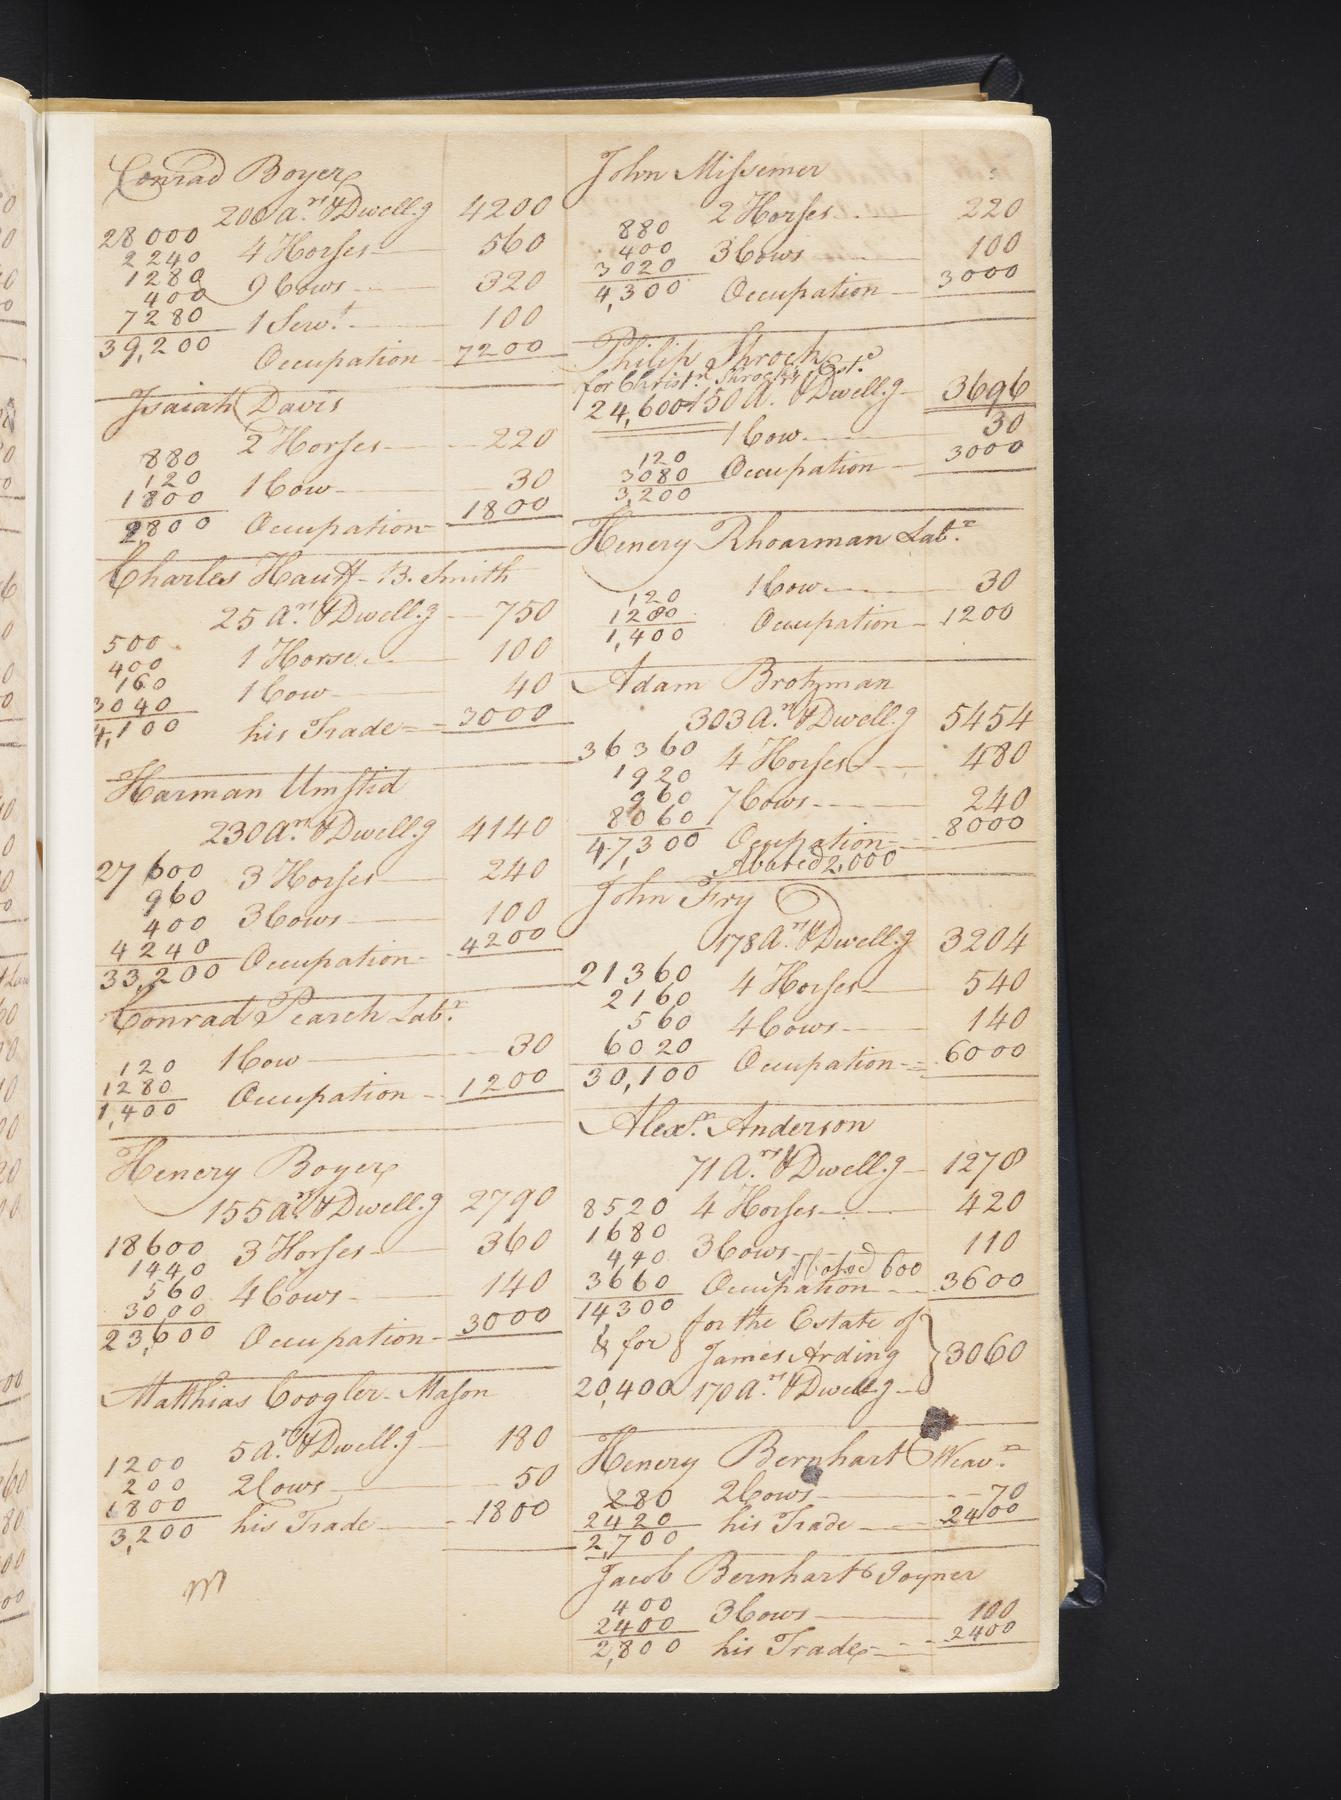 Conrad Boyer
200 a.rs & Dwell.g 4200
28000
2240 4 Horses 560
1280
400 9 Cows 320
7280 1 Serv.t 100
39,200 Occupation 7200
Isaiah Davis
2 Horses 220
880
120 1 Cow 30
1800
2800 Occupation 1800
Charles Hauff B. Smith
25 a.rs & Dwell.g 750
500
400 1 Horse 100
160 1 Cow 40
3040
4,100 his Trade 3000
Harman Umstid
230 a.rs & Dwell.g 4140
27600 3 Horses 240
960
400 3 Cows 100
4240
33,200 Occupation 4200
Conrad Pearch Lab.r
120 1 Cow 30
1280
1,400 Occupation 1200
Henery Boyer
155 a.rs & Dwell.g 2790
18600 3 Horses 360
1440
560 4 Cows 140
3000
23,600 Occupation 3000
Matthias Coogler Mason
5 a.rs & Dwell.g 180
1200
200 2 Cows 50
1800
3,200 his Trade 1800
m
John Missemer
2 Horses 220
880
400 3 Cows 100
3020
4,300 Occupation 3000
Philip Shroch
for Christ.n Shroch's Est.e
24,600 150 a. & Dwell.g 3696
1 Cow 30
120
3080 Occupation 3000
3,200
Henery Rhoarman Lab.r
120 1 Cow 30
1280
1,400 Occupation 1200
Adam Brotzman
303 a.rs & Dwell.g 5454
36360
1920 4 Horses 480
960 7 Cows 240
8060
47,300 Occupation 8000
Abated 2,000
John Fry
178 a.rs & Dwell.g 3204
21360
2160 4 Horses 540
560 4 Cows 140
6020
30,100 Occupation 6000
Alex.r Anderson
71 a.rs & Dwell.g 1278
8520 4 Horses 420
1680
440 3 Cows 110
Abated 600
3660 Occupation 3600
14,300 for the Estate of
& for James Arding 3060
20,400 170 a.rs & Dwell.g
Henery Bernhart Weav.r
280 2 Cows 70
2420 his Trade 2400
2,700
Jacob Bernhart Joyner
400 3 Cows 100
2400
2,800 his Trade 2400